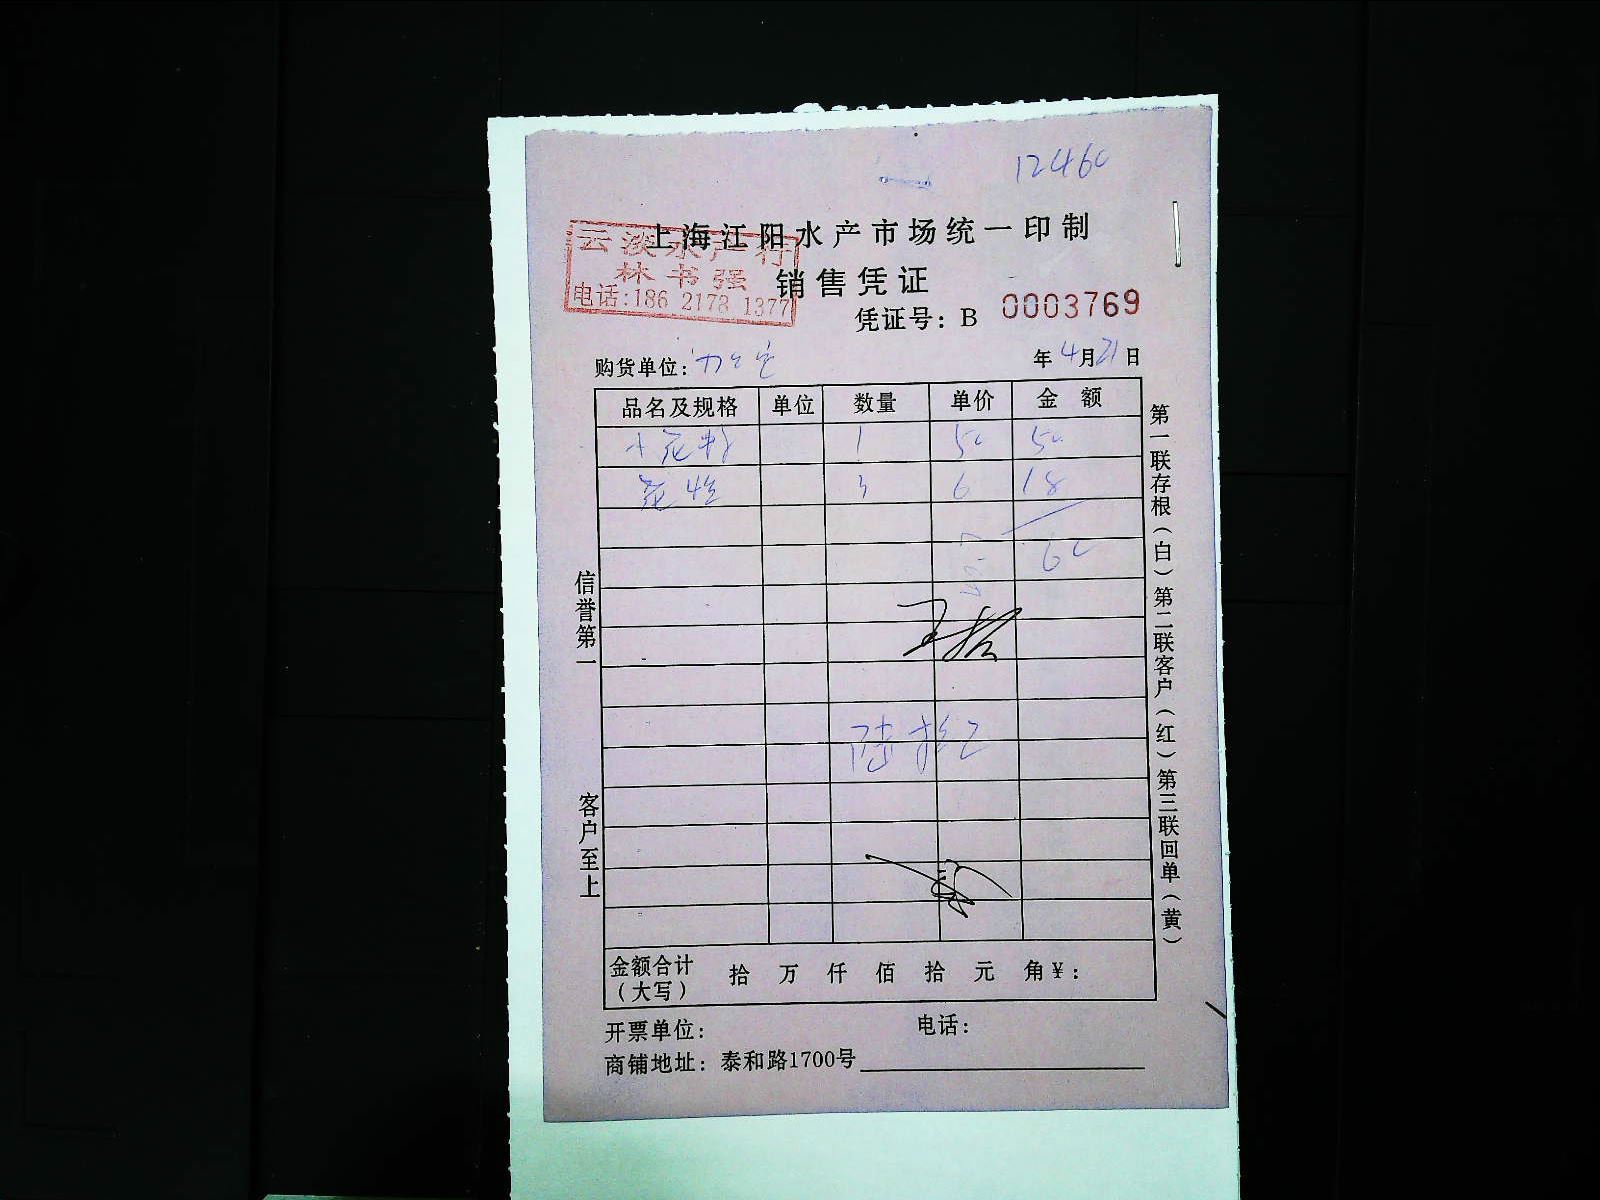 1246
上海江阳水产市场统一印制
云淡水产行
林书强
电话:186 2178 1377
销售凭证
凭证号: B 0003769
购货单位:
年4月21日
品名及规格 单位 数量 单价 金额
1 50 50
花蛤 3 6 18
60
陆拾元
信誉第一
客户至上
第一联存根(白)第二联客户(红)第三联回单(黄)
金额合计(大写) 拾 万 仟 佰 拾 元 角¥:
开票单位: 电话:
商铺地址: 泰和路1700号